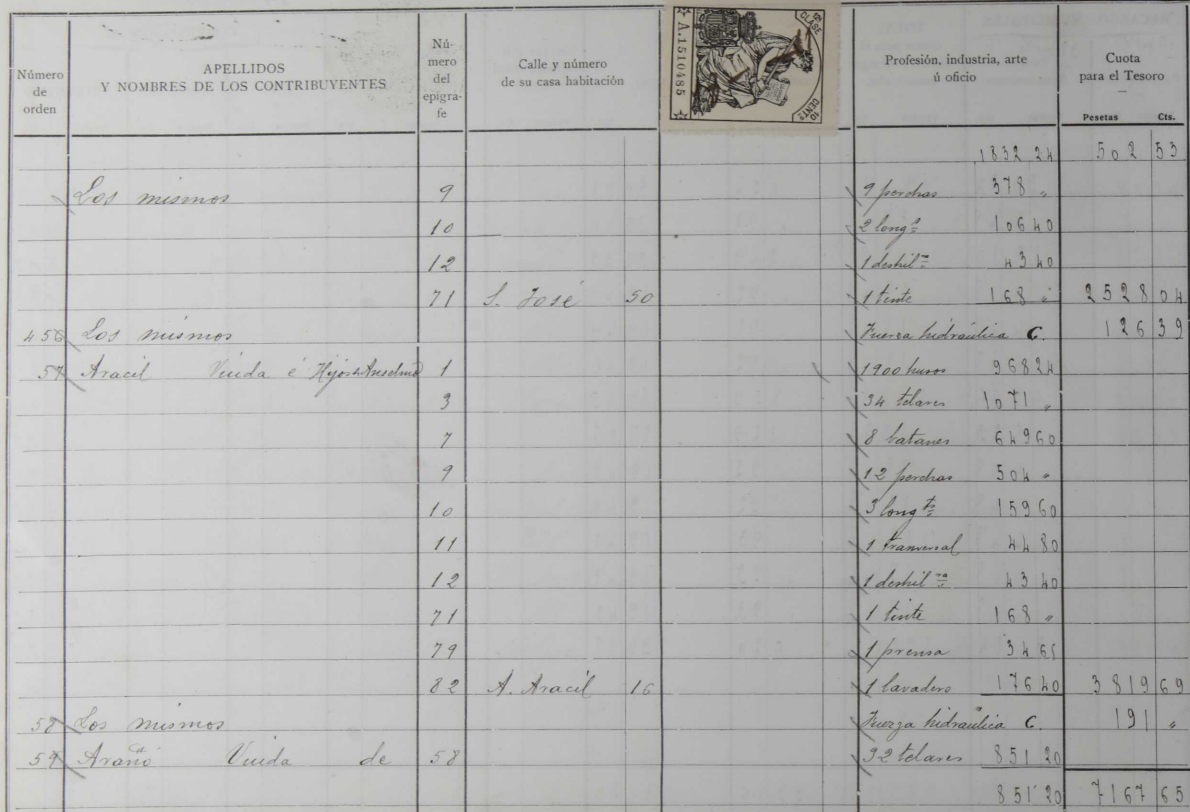 Número de orden
APELLIDOS Y NOMBRES DE LOS CONTRIBUYENTES
Nú-mero del epígra-fe
Calle y número de su casa habitación
8ª CLASE
A.1510485
10 CENTS
Profesión, industria, arte ú oficio
Cuota para el Tesoro
Pesetas Cts.
1832 24 502 53
Los mismos 9 9 perchas 378 "
10 2 long.s 106 40
12 1 deshil.ra 43 40
71 S. José 50 1 tinte 168 " 2528 04
456 Los mismos Fuerza hidraúlica C. 126 39
57 Aracil Viuda é Hijos de Anselmo 1 1900 husos 968 24
3 34 telares 1071 "
7 8 batanes 649 60
9 12 perchas 504 "
10 3 long.s 159 60
11 1 tranversal 44 80
12 1 deshil.ra 43 40
71 1 tinte 168 "
79 1 prensa 34 65
82 A. Aracil 16 1 lavadero 176 40 3819 69
58 Los mismos Fuerza hidraúlica C. 191 "
59 Araño Viuda de 58 32 telares 851 20
851 20 7167 65